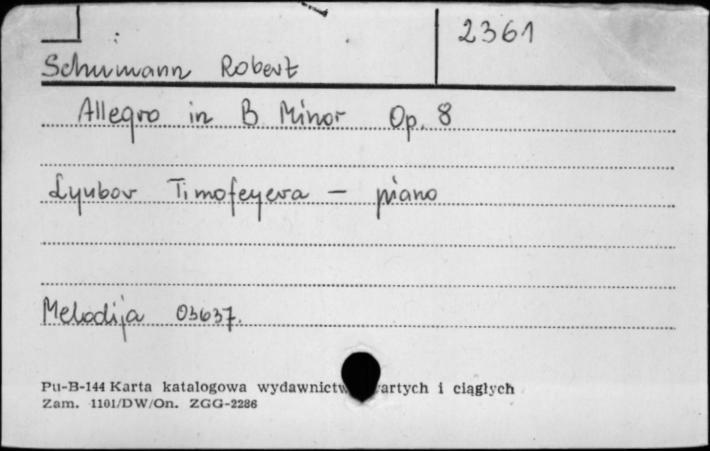 2361
Schumann Robert
Allegro in B Minor Op. 8
Lyubov Timofeyeva - piano
Melodija 03637.
Pu-B-144 Karta katalogowa wydawnictw artych i ciągłych
Zam. 1101/DW/On. ZGG-2286